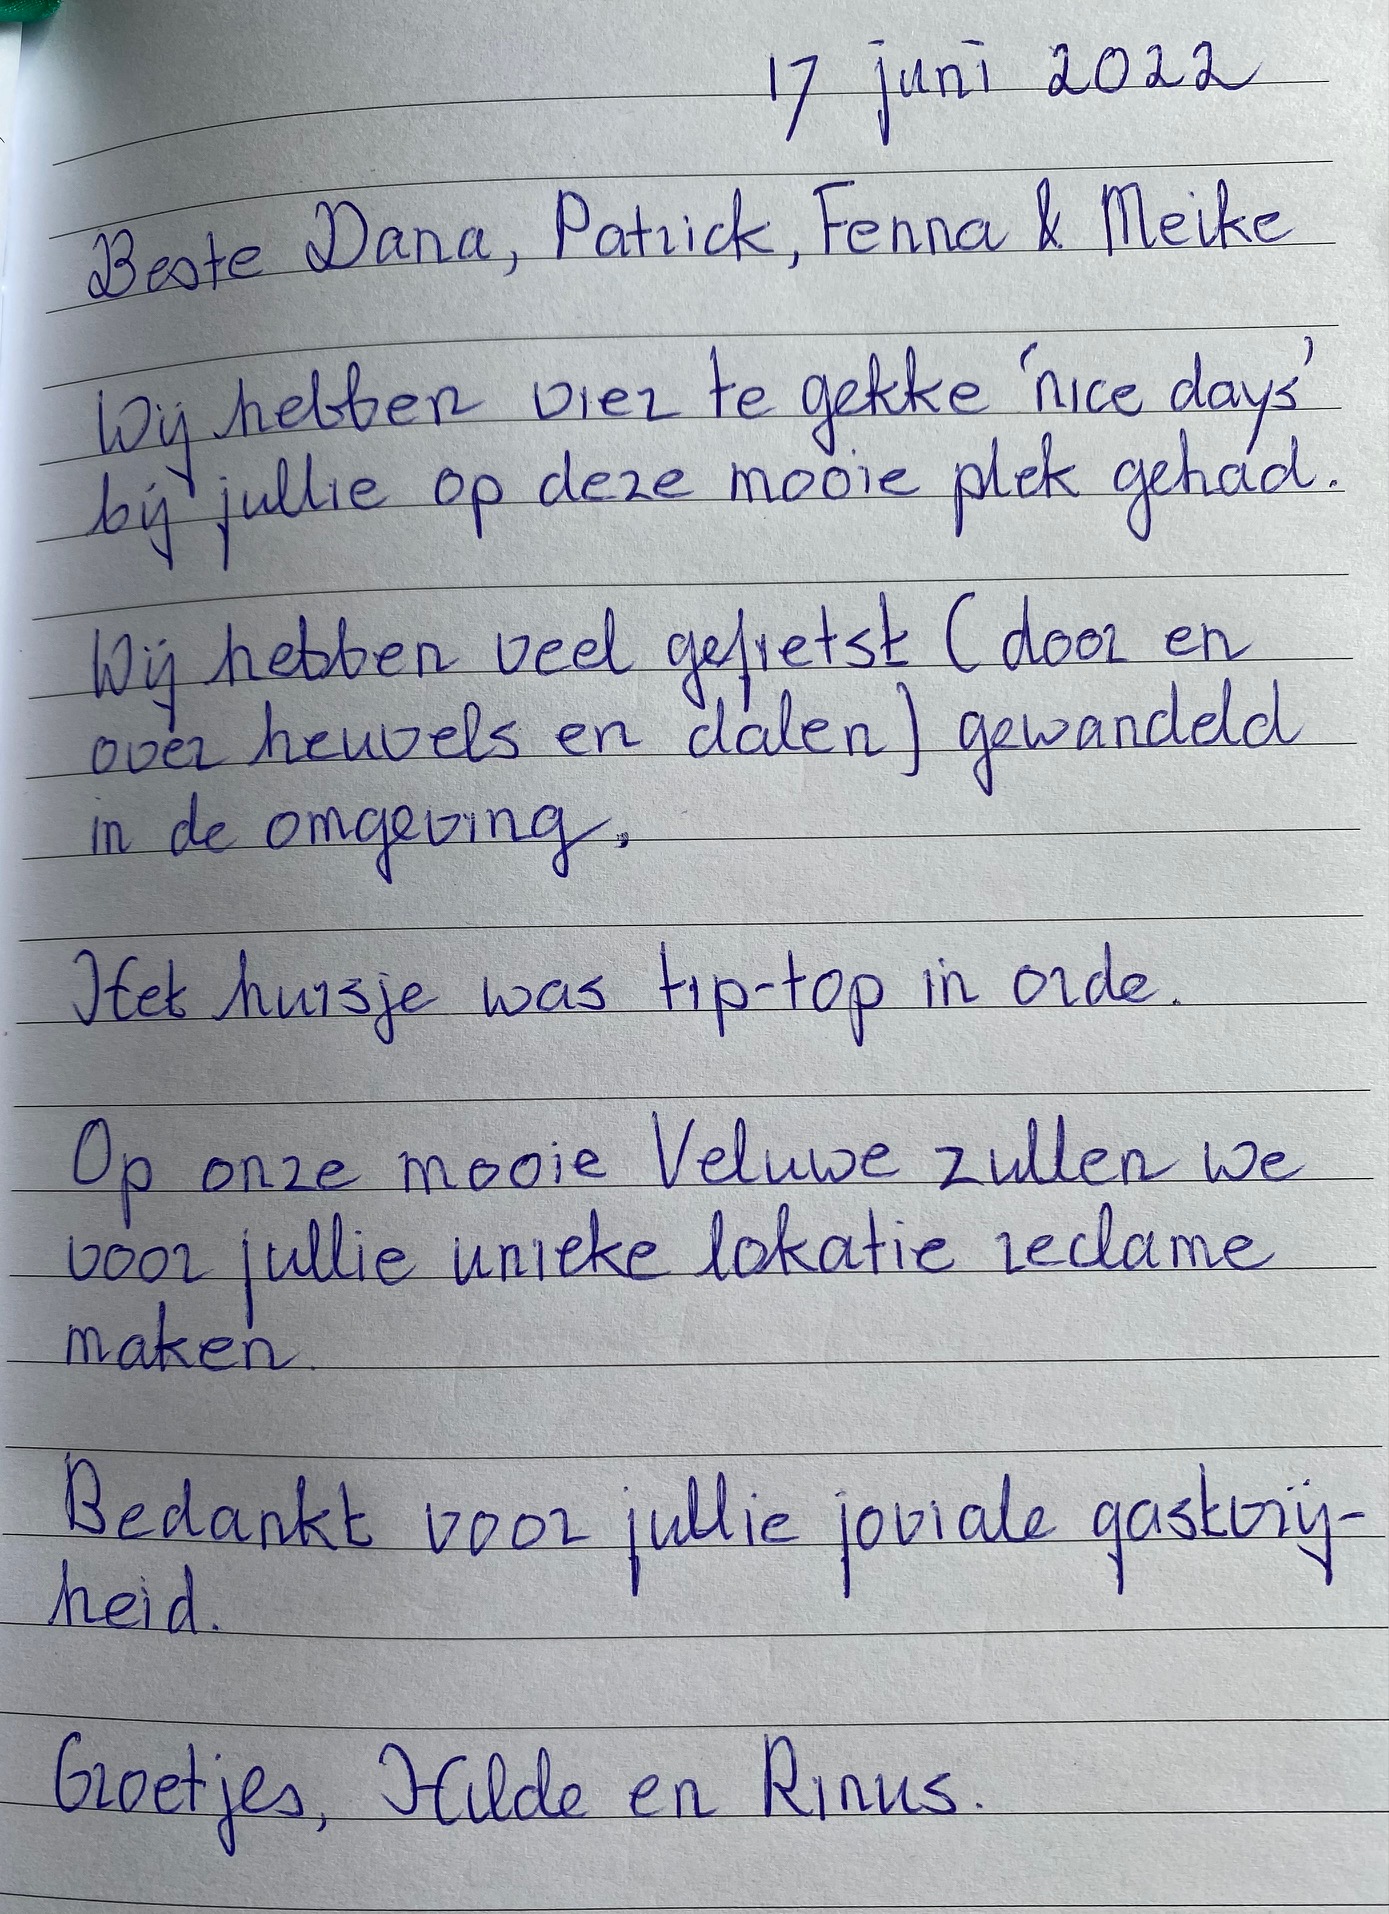 17 juni 2022
Beste Dana, Patrick, Fenna & Meike
Wij hebben vier te gekke 'nice days'
bij jullie op deze mooie plek gehad.
Wij hebben veel gefietst (door en
over heuvels en dalen) gewandeld
in de omgeving.
Het huisje was tip-top in orde.
Op onze mooie Veluwe zullen we
voor jullie unieke lokatie reclame
maken.
Bedankt voor jullie joviale gastvrij-
heid.
Groetjes, Hilde en Rinus.